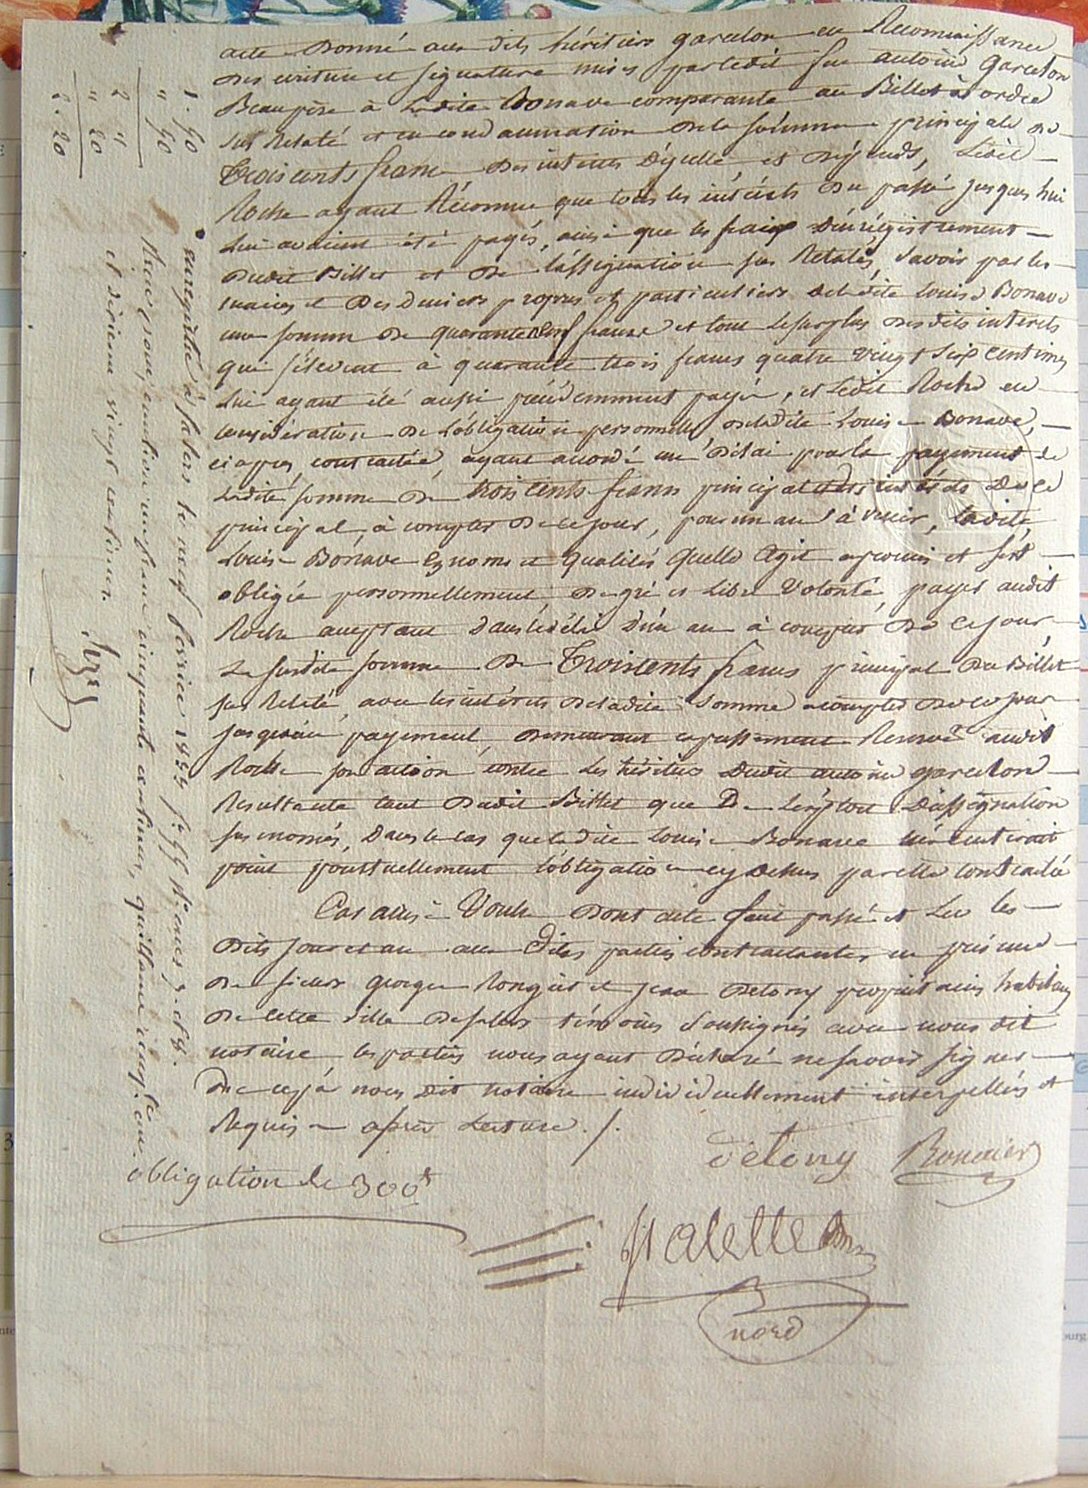 acte Donné aux dits héritiers garcelon en Reconnaissance
des ecriture et signature mises par ledit feu antoine Garcelon
Beaupère à Ladite Bonave comparante au Billet à ordre
sus Relaté et en condamnation de la somme principale de
Trois cents francs des interets d'ycelle et dépends, Ledit
Roche ayant Réconnu que tous les intérêts du passé jusques hui
lui avaient été payés, ainsi que les fraix d'enrégistrement
dudit Billet et de l'assignation sus Relatés, Savoir par les
mains et des deniers propres et particuliers de ladite Louise Bonave
une somme de quarante neuf francs et tout le surplus desdits interets
qui s'élevent à quarante trois francs quatre vingt six centimes
lui ayant été aussi précédemment payés, et Ledit Roche en
considération de l'obligation personnelle de ladite Louise Bonave,
ci après contractée, ayant accordé un Délai pour le payement de
Ladite somme de trois cents francs principal et des intérêts de ce
principal, à compter de ce jour, pour un an à venir, Ladite
Louise Bonave Ez noms et qualités quelle Agit a promis et s'est
obligée personnellement de gré et Libre Volonté, payer audit
Roche acceptant dans le délai d'un an à compter de ce jour
La susdite somme de Trois cents francs principal du Billet
sus Relaté, avec les intérêts de ladite Somme a compter de ce jour
jusqu'au payement, demeurant expressement Reservé audit
Roche son action contre Les héritiers dudit antoine garcelon
Resultante tant dudit Billet que De L'exploit D'assignation
sus énoncés, Dans le cas que ladite Louise Bonave n'éxécuterait
point ponctuellement l'obligation cy dessus par elle contractée
Car ainsi Voulu dont acte fait passé et Lu les
dits jour et an aux Dites parties contractantes en présence
de sieurs george et jean Detony propriétaires habitans
de cette ville de salers témoins Soussignés avec nous dit
notaire les parties nous ayant Déclaré ne savoir signer
De ce par nous dit notaire individuellement interpellés et
Requis après Lecture ./.
Detony
obligation de 300f
nore
enregistré à salers le neuf 
Reçu un franc cinquante centimes, 
et dixieme vingt centimes.
1. 50
" 50
2 "
" 20
2. 20